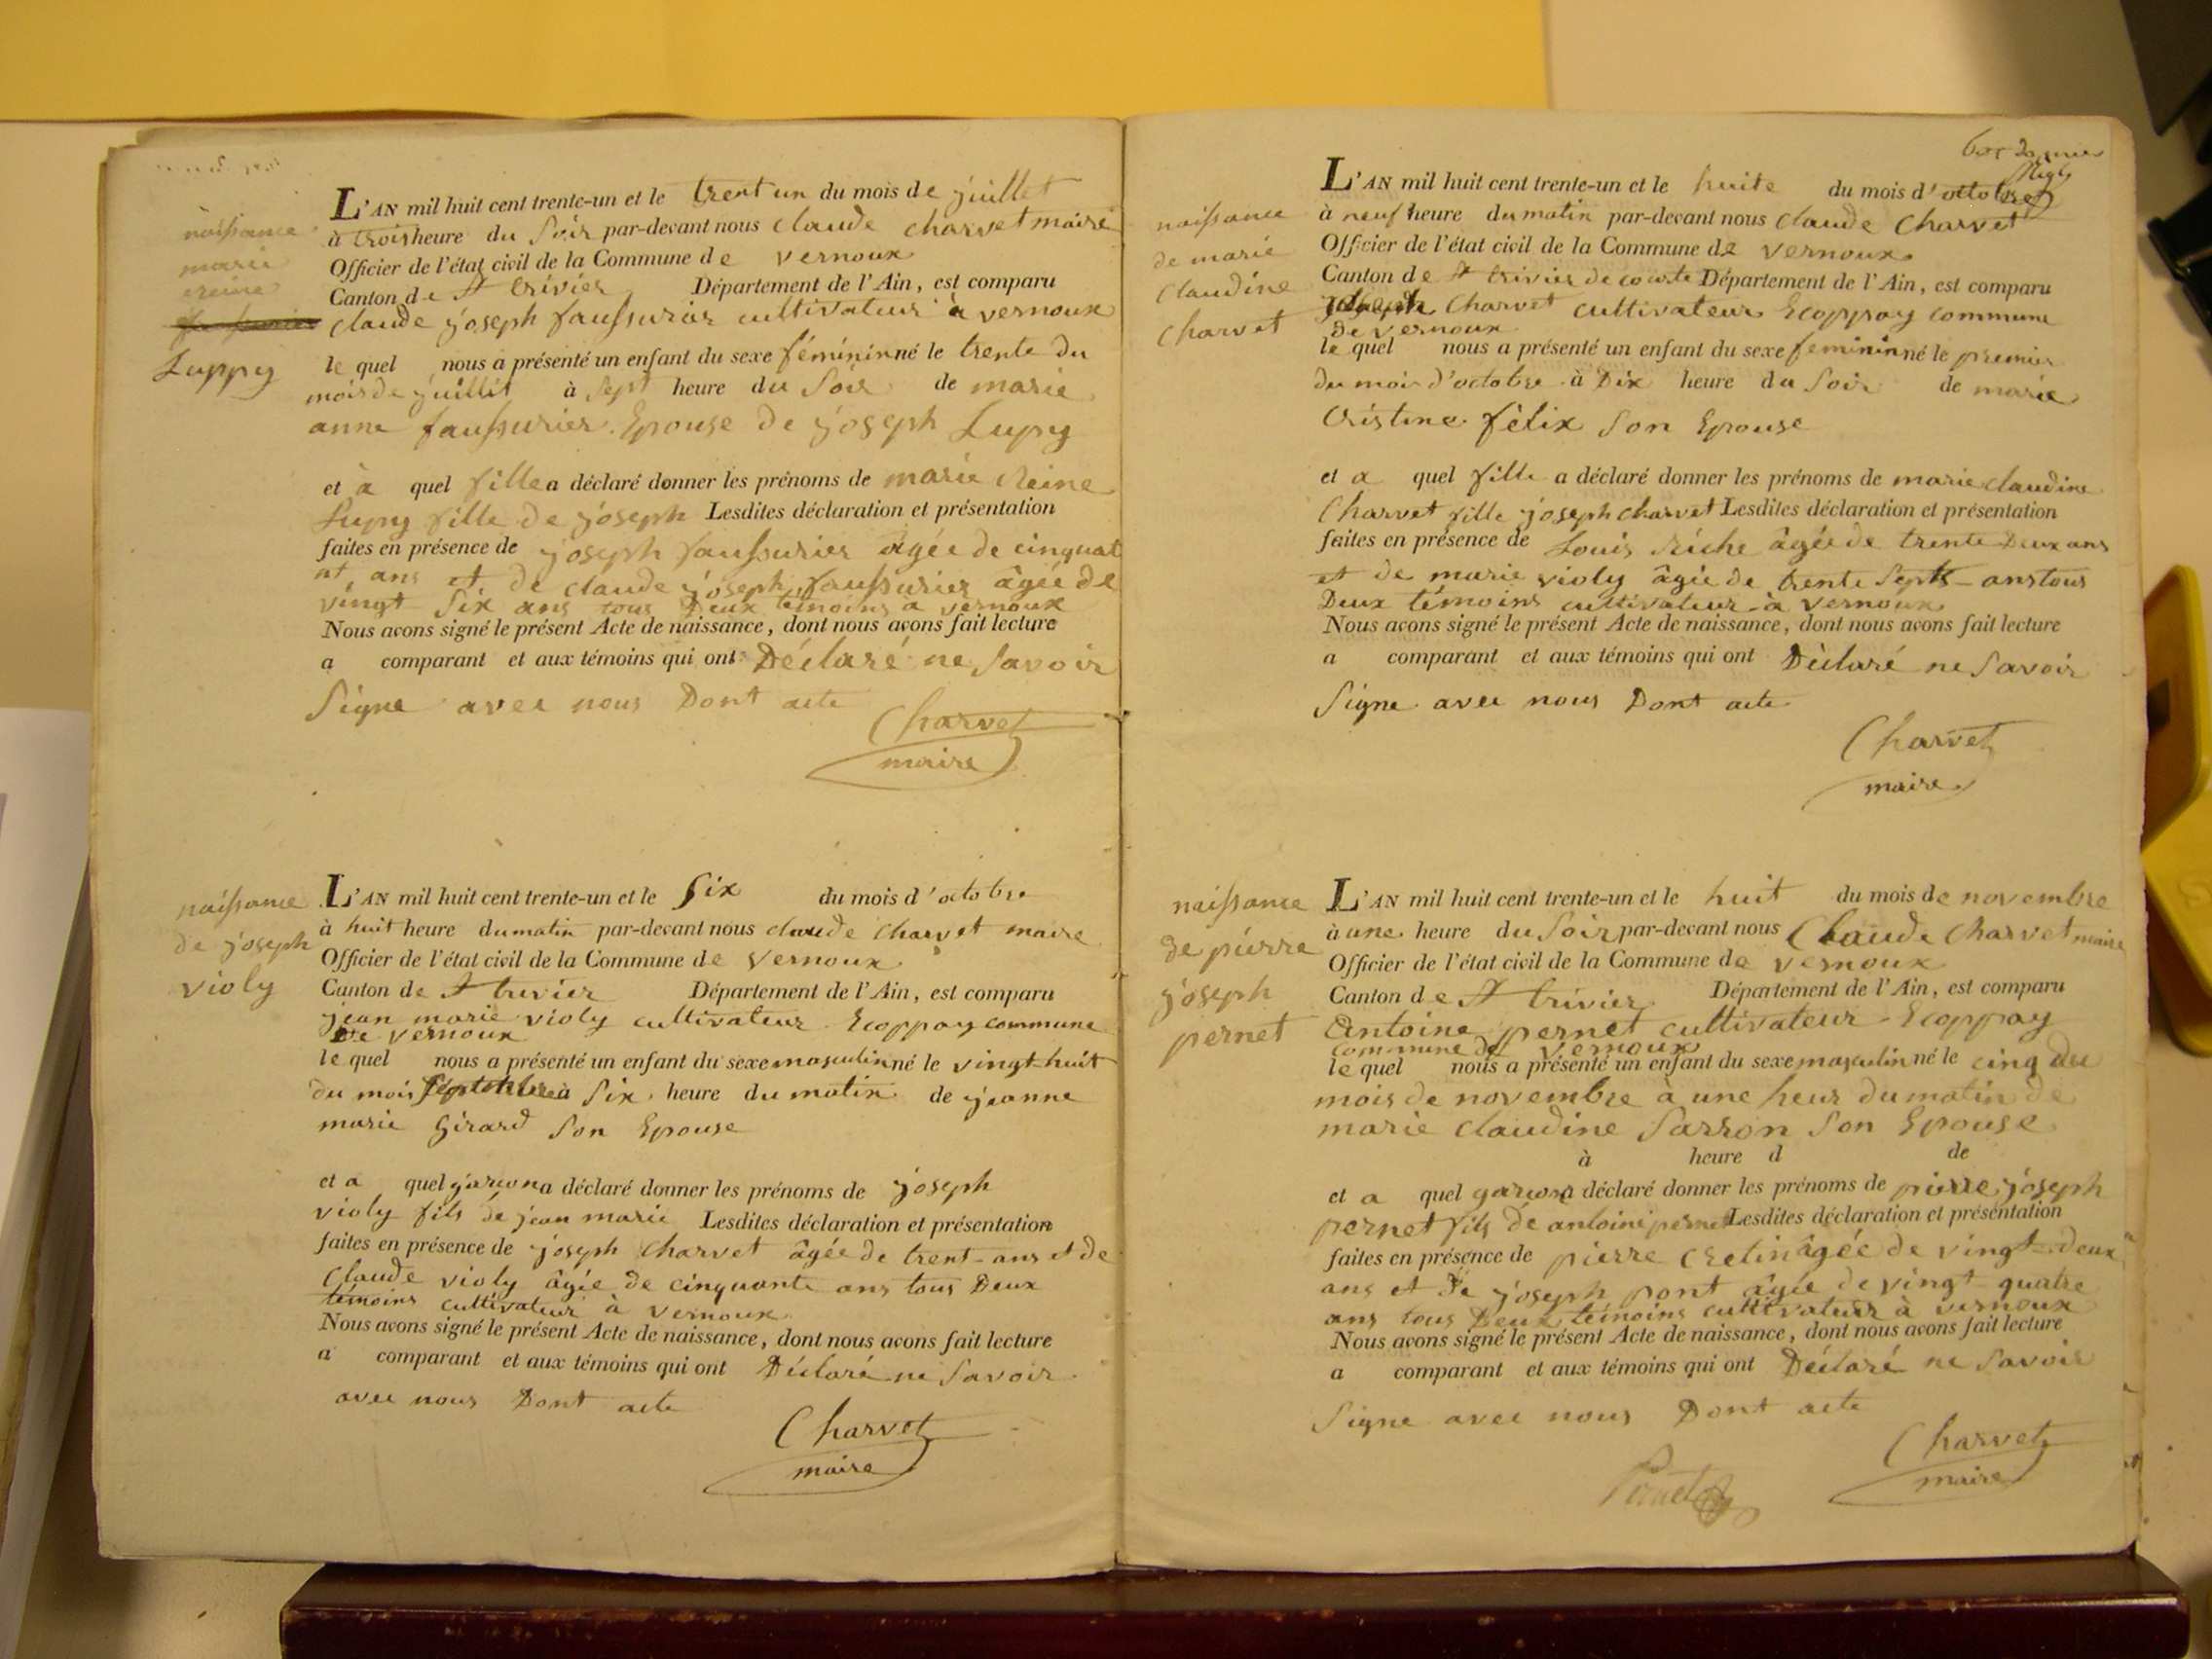 naissance
marie
reine
Luppy
L'AN mil huit cent trente-un et le trent un du mois de juillet
à trois heure du soir par-devant nous claude charvet maire
Officier de l'état civil de la Commune de vernoux
Canton de st trivier Département de l'Ain, est comparu
claude joseph faussurier cultivateur à vernoux
le quel nous a présenté un enfant du sexe féminin né le trente du
mois de juillet à sept heure du soir de marie
anne faussurier Epouse de joseph Lupy
et à quel fille a déclaré donner les prénoms de marie Reine
Lupy fille de joseph Lesdites déclaration et présentation
faites en présence de joseph faussurier âgée de cinquat
nt, ans et de claude joseph faussurier âgée de
vingt six ans tous Deux témoins a vernoux
Nous avons signé le présent Acte de naissance, dont nous avons fait lecture
a comparant et aux témoins qui ont Déclaré ne savoir
signe avec nous Dont acte
Charvet
maire
naissance
de joseph
violy
L'AN mil huit cent trente-un et le six du mois d'octobre
à huit heure du matin par-devant nous claude Charvet maire
Officier de l'état civil de la Commune de vernoux
Canton de st trivier Département de l'Ain, est comparu
jean marie violy cultivateur Ecoppay commune
De vernoux
le quel nous a présenté un enfant du sexe masculin né le vingt-huit
du mois septembre à six heure du matin de jeanne
marie Girard son Epouse
et a quel garcon a déclaré donner les prénoms de joseph
violy fils de jean marie Lesdites déclaration et présentation
faites en présence de joseph Charvet âgée de trent-ans et de
Claude violy âgée de cinquante ans tous Deux
témoins cultivateur à vernoux
Nous avons signé le présent Acte de naissance, dont nous avons fait lecture
a comparant et aux témoins qui ont Déclaré ne savoir
avec nous Dont acte
Charvet
maire
naissance
de marie
claudine
charvet
L'AN mil huit cent trente-un et le huite du mois d'octobre
à neuf heure du matin par-devant nous claude Charvet
Officier de l'état civil de la Commune de vernoux
Canton de st trivier de courte Département de l'Ain, est comparu
joseph Charvet cultivateur Ecoppay commune
De vernoux
le quel nous a présenté un enfant du sexe feminin né le premier
du mois d'octobre à Dix heure du soir de marie
Cristine félix son Epouse
et a quel fille a déclaré donner les prénoms de marie claudine
Charvet fille joseph charvet Lesdites déclaration et présentation
faites en présence de Louis Riche âgée de trente Deux ans
et de marie violy âgée de trente septs ans tous
Deux témoins cultivateur à vernoux
Nous avons signé le présent Acte de naissance, dont nous avons fait lecture
a comparant et aux témoins qui ont Déclaré ne savoir
signe avec nous Dont acte
Charvet
maire
naissance
de pierre
joseph
pernet
L'AN mil huit cent trente-un et le huit du mois de novembre
à une heure du soir par-devant nous Claude Charvet maire
Officier de l'état civil de la Commune de vernoux
Canton de st trivier Département de l'Ain, est comparu
Antoine pernet cultivateur Ecoppay
commune de vernoux
le quel nous a présenté un enfant du sexe masculin né le cinq du
mois de novembre à une heur du matin de
marie claudine sarron son Epouse
à heure d de
et a quel garcon a déclaré donner les prénoms de pierre joseph
pernet fils de antoine pernet Lesdites déclaration et présentation
faites en présence de pierre cretin âgée de vingt-deux
ans et de joseph pont âgée de vingt quatre
ans tous Deux témoins cultivateur à vernoux
Nous avons signé le présent Acte de naissance, dont nous avons fait lecture
a comparant et aux témoins qui ont Déclaré ne savoir
signe avec nous Dont acte
Pernet
Charvet
maire